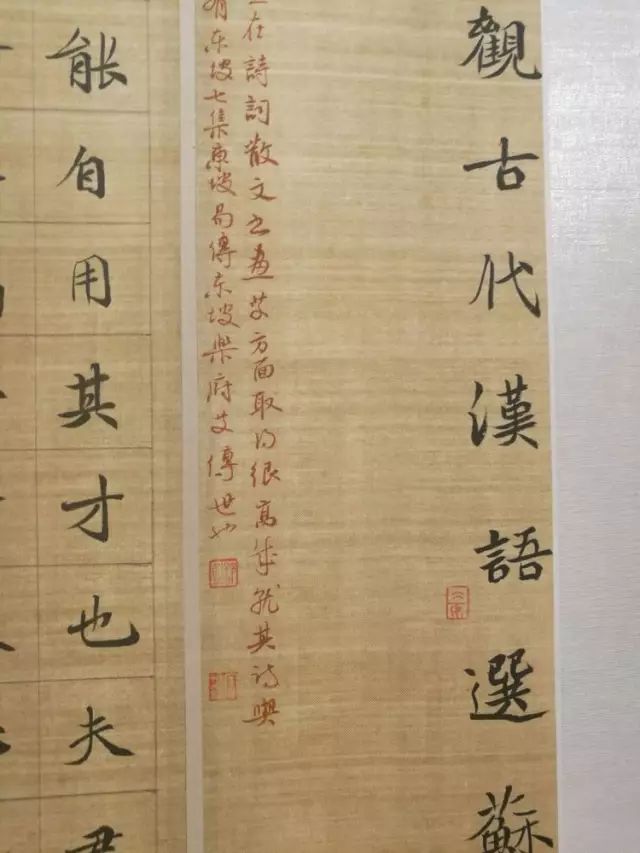 觀古代漢語選蘇
在詩詞散文書畫等方面取得很高成就其詩與
有东坡七集東坡易傳东坡樂府等傳世
能自用其才也夫君